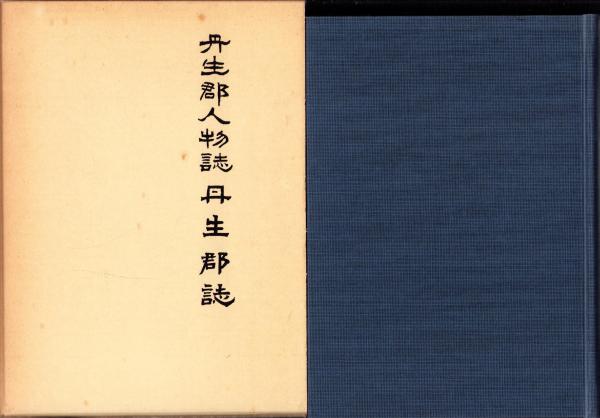 丹生郡人物誌 丹生郡誌